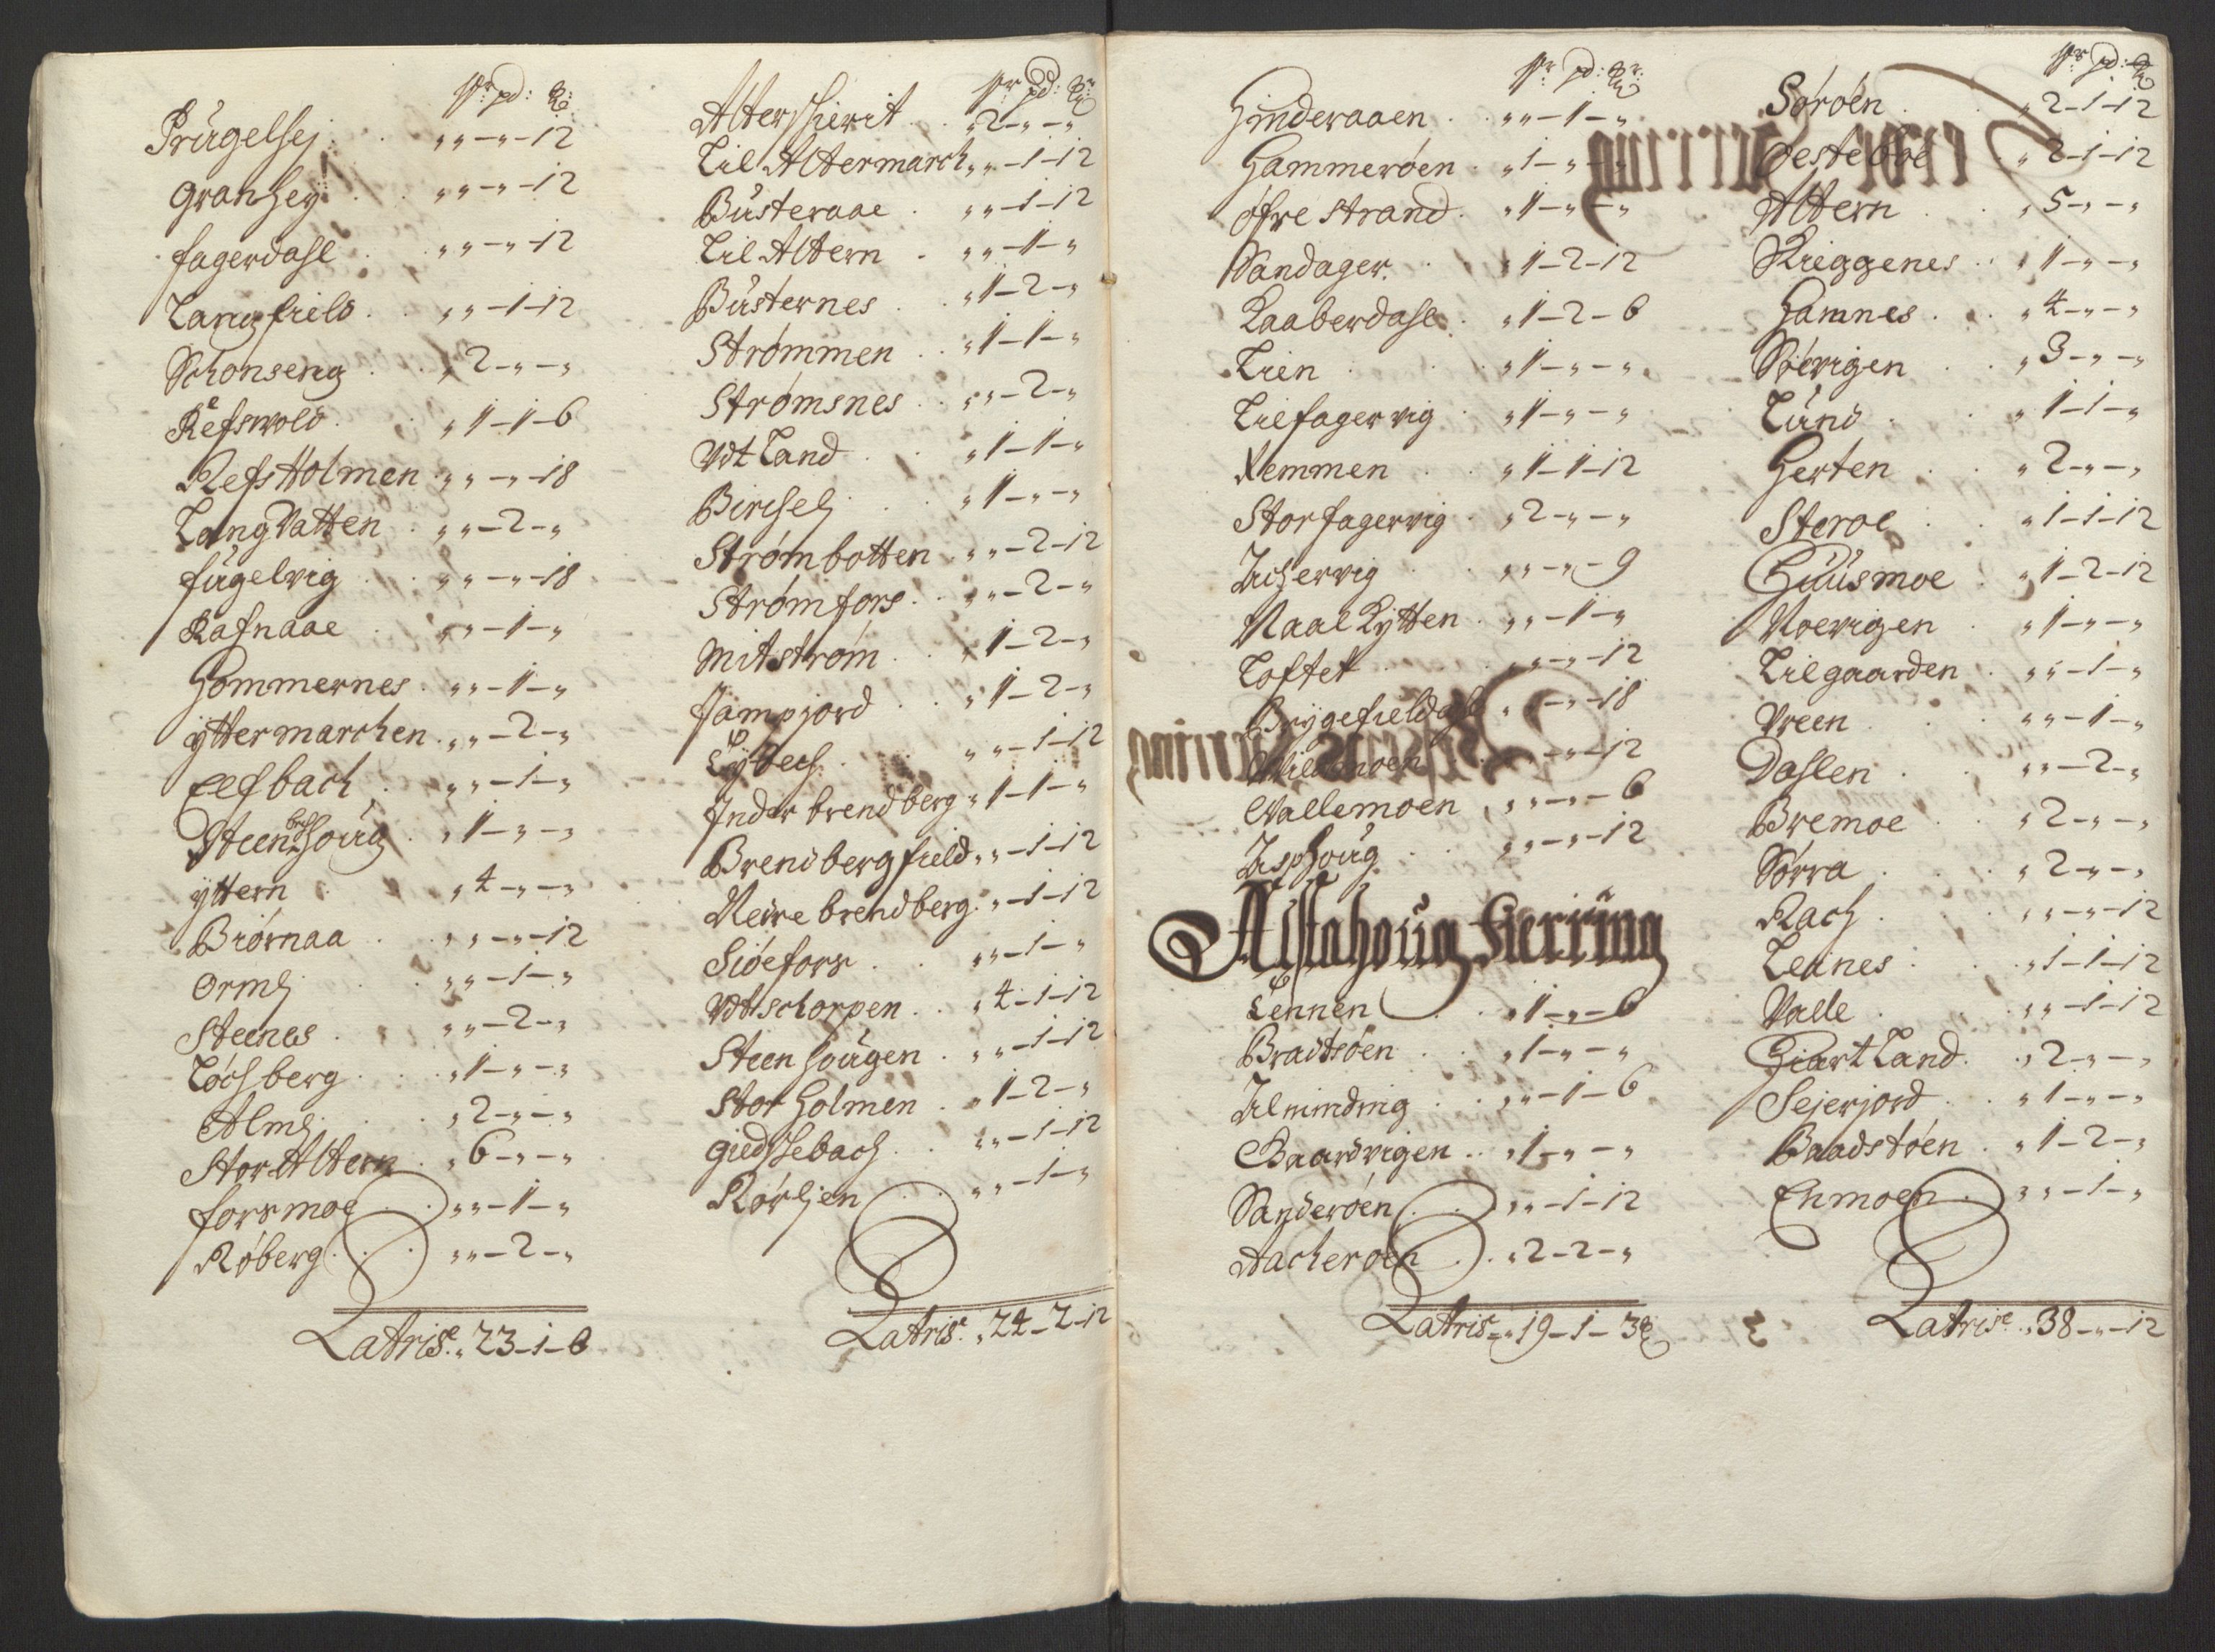 Sr: pd: Mr:
Prügelhej . . „ „ - „ - 12
Granhey . . „ „ - „ - 12
fagerdahl . . „ „ - „ - 12
Langfield . . „ „ - 1 - 12
Schonseng . . „ 2 - „ - „
Refswold . . „ 1 - 1 - 6
Refs Holmen . „ „ - „ - 18
Lang Vatten . „ „ - 2 - „
fügelvig . . „ „ - „ - 18
Rafnaae . . „ „ - 1 - „
Hommernes . „ „ - 1 - „
yttermarchen . „ „ - 2 - „
Elfbach . . „ „ - 1 - „
Steenbechhoüg . „ 1 - „ - „
yttern . . „ 4 - „ - „
Biørnaa . . „ „ - „ - 12
Ormlj . . „ „ - 1 - „
Steenes . . „ „ - 2 - „
Løchberg . . „ 1 - „ - „
Almlj . . „ 2 - „ - „
Stor Altern . „ 6 - „ - „
forsmoe . . „ „ - 1 - „
Røberg . . „ „ - 2 - „
Latris: „ 23 - 1 - 6
Sr: pd: Mr:
Alterschierit . . „ 2 - „ - „
Lil Altermarch „ „ - 1 - 12
Büsteraae . „ „ - 1 - 12
Lil Altern . „ „ - 1 - „
Büsternes . „ 1 - 2 - „
Strømmen . . „ 1 - 1 - „
Strømsnes . . „ „ - 2 - „
Vdt Land . . „ 1 - 1 - „
Birchelj . . „ 1 - „ - „
Strømbotten . „ „ - 2 - 12
Strømfors . . „ „ - 2 - „
Mitstrøm . . „ 1 - 2 - „
Jampjord . . „ 1 - 2 - „
Lÿbech . . „ „ - 1 - 12
Inder brendberg „ 1 - 1 - „
Brendbergfield „ „ - 1 - 12
Neire brendberg „ „ - 1 - 12
Siøefors . . „ „ - 1 - „
Vdtschorpen . . „ 4 - 1 - 12
Steenhoügen . „ „ - 1 - 12
Stor Holmen . „ 1 - 2 - „
Giedssebach . . „ „ - 1 - 12
Rørljen . . „ „ - 1 - „
Latris: „ 24 - 2 - 12
Sr: pd: Mr:
Hinderaaen . . „ „ - 1 - „
Hammerøen . „ 1 - „ - „
øfre strand . „ 1 - „ - „
Sandager . „ 1 - 2 - 12
Kaaberdahl . „ 1 - 2 - 6
Lien . . „ 1 - „ - „
Lilfagervig . „ 1 - „ - „
Nemmen . . „ 1 - 1 - 12
Storfagervig . „ 2 - „ - „
Achervig . „ „ - „ - 9
Naal Kytten . „ „ - 1 - „
Loftet . . „ „ - „ - 12
Brygefieldahl „ „ - „ - 18
„ - 12
Vallemoen . „ „ - „ - 6
Asphoüg . . „ „ - „ - 12
Alstahoüg Fierring
Tennen . . „ 1 - „ - 6
Bradtsøen . . „ 1 - „ - „
Alminding . . „ „ - 1 - 6
Baardvigen . . „ 1 - „ - „
Sanderøen . . „ „ - 1 - 12
Aacherøen . . „ 2 - 2 - „
Latris: „ 19 - 1 - 3
Sr: pd: Mr:
Sørøen . „ 2 - 1 - 12
Oestebøe . „ 2 - 1 - 12
Altern . . „ 5 - „ - „
Skieggenes . . „ 1 - „ - „
Hamnes . . „ 4 - „ - „
Søevigen . . „ 3 - „ - „
Lünd . . „ 1 - 1 - „
Herten . . „ 2 - „ - „
Steroe . . „ 1 - 1 - 12
Huüsmoe . „ 1 - 2 - 12
Noevigen . „ 1 - „ - „
Lilgaarden . „ „ - 1 - „
Vreen . . „ „ - 1 - „
Dahlen . . „ „ - 2 - „
Bremoe . . „ 2 - „ - „
Sørra . . „ 2 - „ - „
Rach . . „ „ - „ - 12
Leines . . „ 1 - 1 - 12
Valle . . „ „ - 1 - 12
Hiart Land . „ 2 - „ - „
Sejerjord . . „ 1 - „ - „
Baadstøen . „ 1 - 2 - „
Enmoen . „ „ - 1 - „
Latris: „ 38 - „ - 12